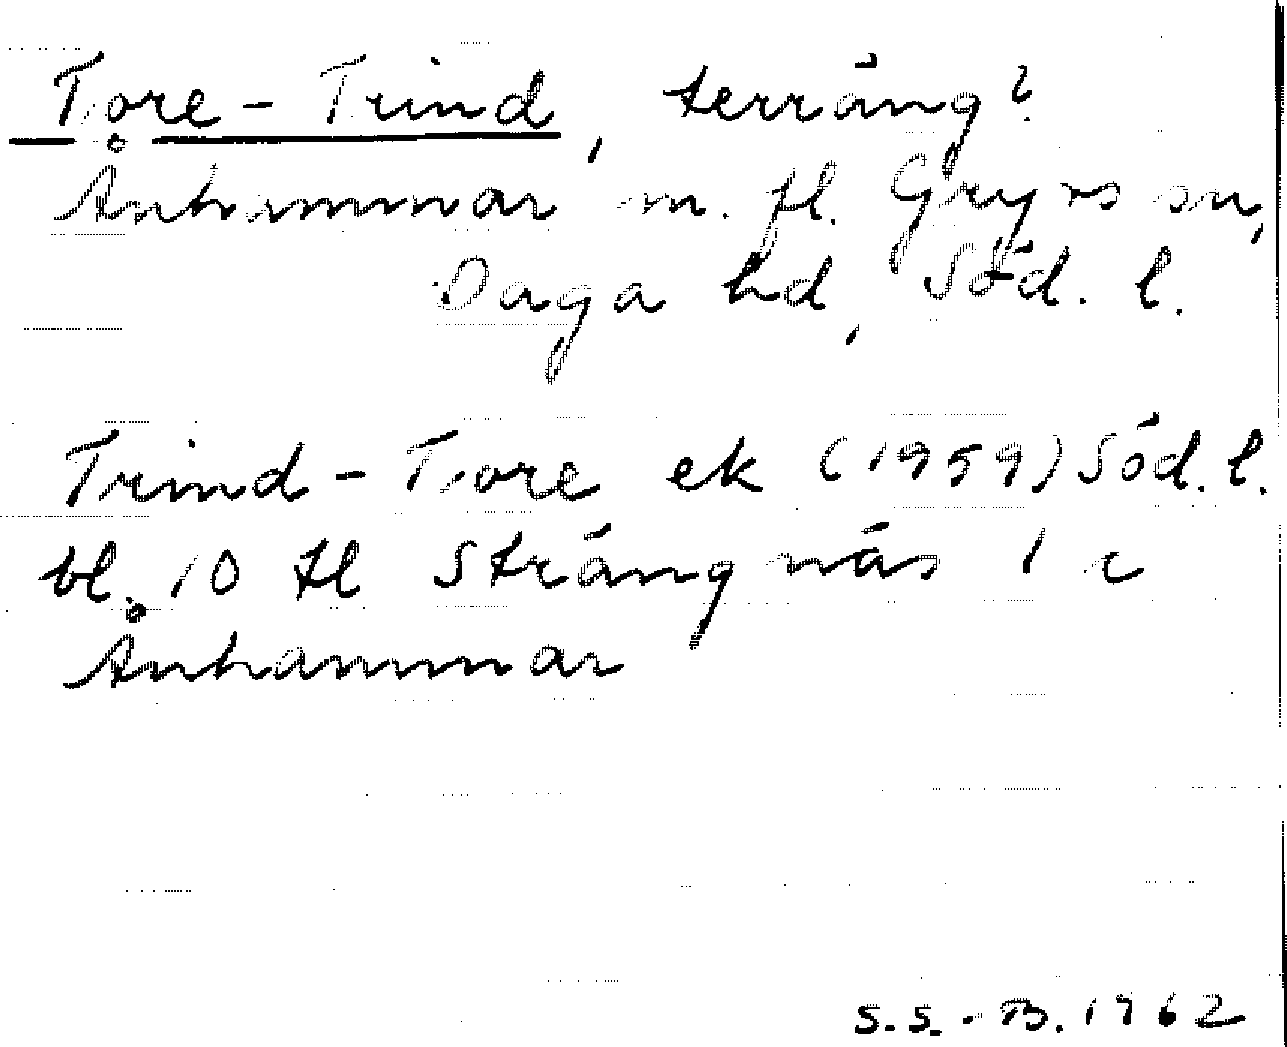 Tore-Trind, terräng?
Ånhammar m. fl. Gryts sn,
Daga hd, Söd. l.
Trind-Tore ek (1959) Söd. l.
bl. 10 fl Strängnäs 1 c
Ånhammar
S.S.-B. 1962